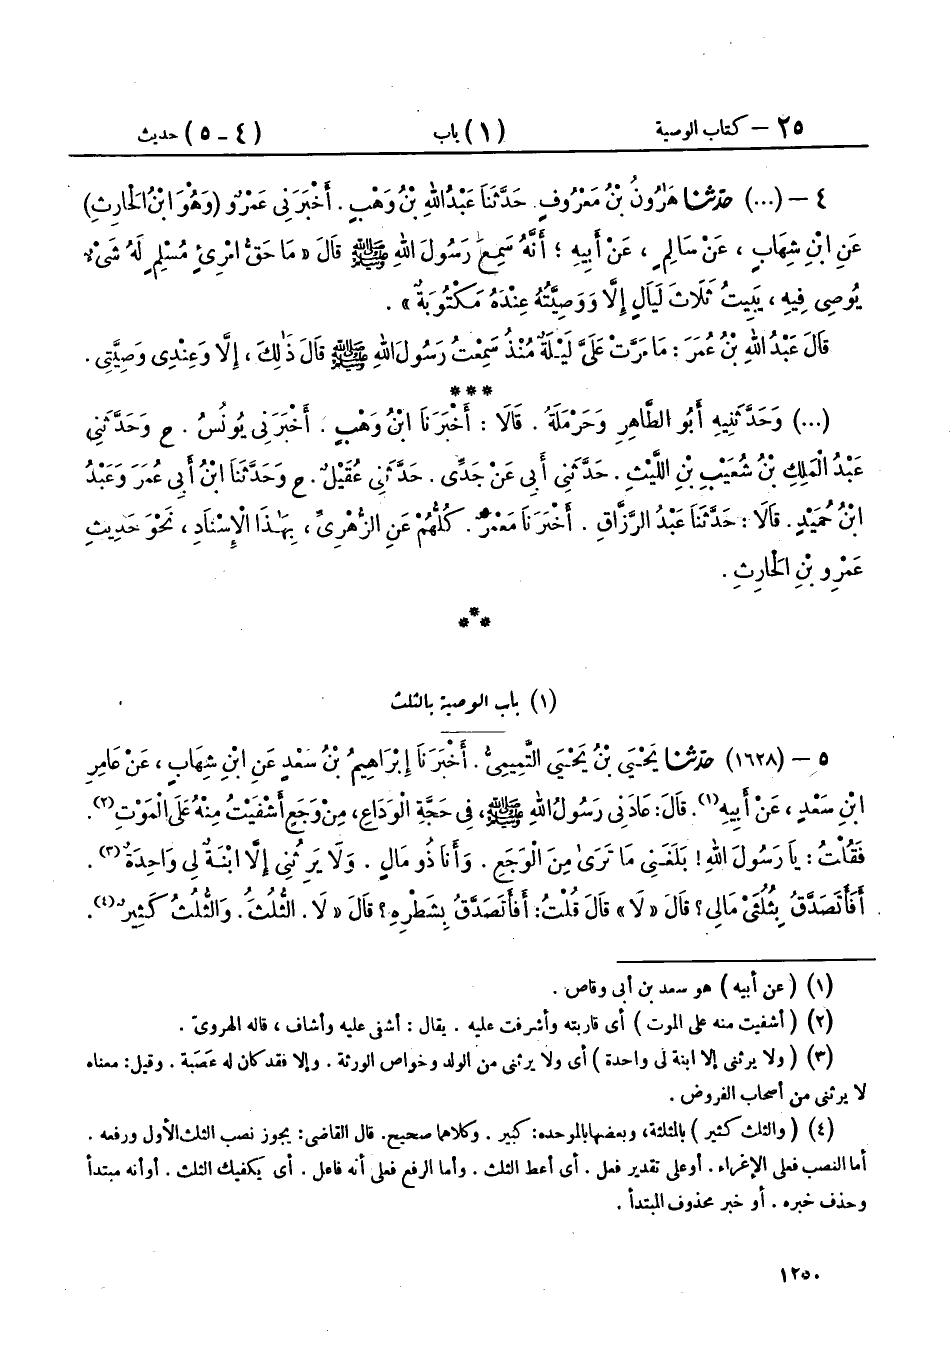 ٢٥ – كتاب الوصية (١) باب (٤ – ٥) حديث
٤ – (...) حدثنا هَارُونُ بْنُ مَعْرُوفٍ. حَدَّثَنَا عَبْدُ اللهِ بْنُ وَهْبٍ. أَخْبَرَنِي عَمْرٌو (وَهُوَ ابْنُ الْحَارِثِ)
عَنِ ابْنِ شِهَابٍ، عَنْ سَالِمٍ، عَنْ أَبِيهِ؛ أَنَّهُ سَمِعَ رَسُولَ اللهِ ﷺ قَالَ «مَا حَقُّ امْرِئٍ مُسْلِمٍ لَهُ شَيْءٌ
يُوصِي فِيهِ، يَبِيتُ ثَلَاثَ لَيَالٍ إِلَّا وَوَصِيَّتُهُ عِنْدَهُ مَكْتُوبَةٌ».
قَالَ عَبْدُ اللهِ بْنُ عُمَرَ: مَا مَرَّتْ عَلَيَّ لَيْلَةٌ مُنْذُ سَمِعْتُ رَسُولَ اللهِ ﷺ قَالَ ذَٰلِكَ، إِلَّا وَعِنْدِي وَصِيَّتِي.
***
(...) وَحَدَّثَنِيهِ أَبُو الطَّاهِرِ وَحَرْمَلَةُ. قَالَا: أَخْبَرَنَا ابْنُ وَهْبٍ. أَخْبَرَنِي يُونُسُ. ح وَحَدَّثَنِي
عَبْدُ الْمَلِكِ بْنُ شُعَيْبِ بْنِ اللَّيْثِ. حَدَّثَنِي أَبِي عَنْ جَدِّي. حَدَّثَنِي عُقَيْلٌ. ح وَحَدَّثَنَا ابْنُ أَبِي عُمَرَ وَعَبْدُ
ابْنُ حُمَيْدٍ. قَالَا: حَدَّثَنَا عَبْدُ الرَّزَّاقِ. أَخْبَرَنَا مَعْمَرٌ. كُلُّهُمْ عَنِ الزُّهْرِيِّ، بِهَٰذَا الْإِسْنَادِ، نَحْوَ حَدِيثِ
عَمْرِو بْنِ الْحَارِثِ.
***
(١) باب الوصية بالثلث
٥ – (١٦٢٨) حدثنا يَحْيَى بْنُ يَحْيَى التَّمِيمِيُّ. أَخْبَرَنَا إِبْرَاهِيمُ بْنُ سَعْدٍ عَنِ ابْنِ شِهَابٍ، عَنْ عَامِرِ
ابْنِ سَعْدٍ، عَنْ أَبِيهِ(١). قَالَ: عَادَنِي رَسُولُ اللهِ ﷺ، فِي حَجَّةِ الْوَدَاعِ، مِنْ وَجَعٍ أَشْفَيْتُ مِنْهُ عَلَى الْمَوْتِ(٢).
فَقُلْتُ: يَا رَسُولَ اللهِ! بَلَغَنِي مَا تَرَىٰ مِنَ الْوَجَعِ. وَأَنَا ذُو مَالٍ. وَلَا يَرِثُنِي إِلَّا ابْنَةٌ لِي وَاحِدَةٌ(٣).
أَفَأَتَصَدَّقُ بِثُلُثَيْ مَالِي؟ قَالَ «لَا» قَالَ قُلْتُ: أَفَأَتَصَدَّقُ بِشَطْرِهِ؟ قَالَ «لَا. الثُّلُثُ. وَالثُّلُثُ كَثِيرٌ(٤).
(١) (عن أبيه) هو سعد بن أبى وقاص.
(٢) (أشفيت منه على الموت) أى قاربته وأشرفت عليه. يقال: أشفى عليه وأشاف، قاله الهروىّ.
(٣) (ولا يرثنى إلا ابنة لى واحدة) أى ولا يرثنى من الولد وخواص الورثة. وإلا فقد كان له عَصَبة. وقيل: معناه
لا يرثنى من أصحاب الفروض.
(٤) (والثلث كثير) بالمثلثة، وبعضها بالموحدة: كبير. وكلاهما صحيح. قال القاضى: يجوز نصب الثلث الأول ورفعه.
أما النصب فعلى الإغراء. أو على تقدير فعل. أى أعط الثلث. وأما الرفع فعلى أنه فاعل. أى يكفيك الثلث. أو أنه مبتدأ
وحذف خبره. أو خبر محذوف المبتدأ.
١٢٥٠